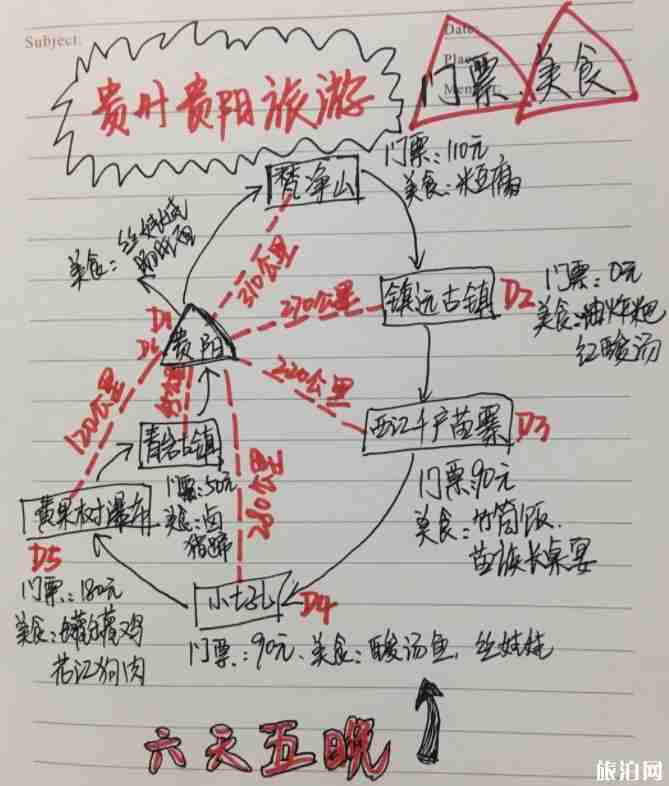 Subject:
Date:
贵州贵阳旅游
门票 美食
梵净山
门票:110元
美食:米豆腐
美食:丝娃娃
310公里
镇远古镇
D2
门票:0元
美食:油炸粑
红酸汤
270公里
D1
D6
贵阳
220公里
西江千户苗寨
D3
门票:90元
美食:竹筒饭、
苗族长桌宴
120公里
280公里
青岩古镇
门票:50元
美食:卤
猪蹄
黄果树瀑布
D5
门票:180元
美食:罐罐鸡
花江狗肉
小七孔
D4
门票:90元、美食:酸汤鱼、丝娃娃
六天五晚
旅泊网